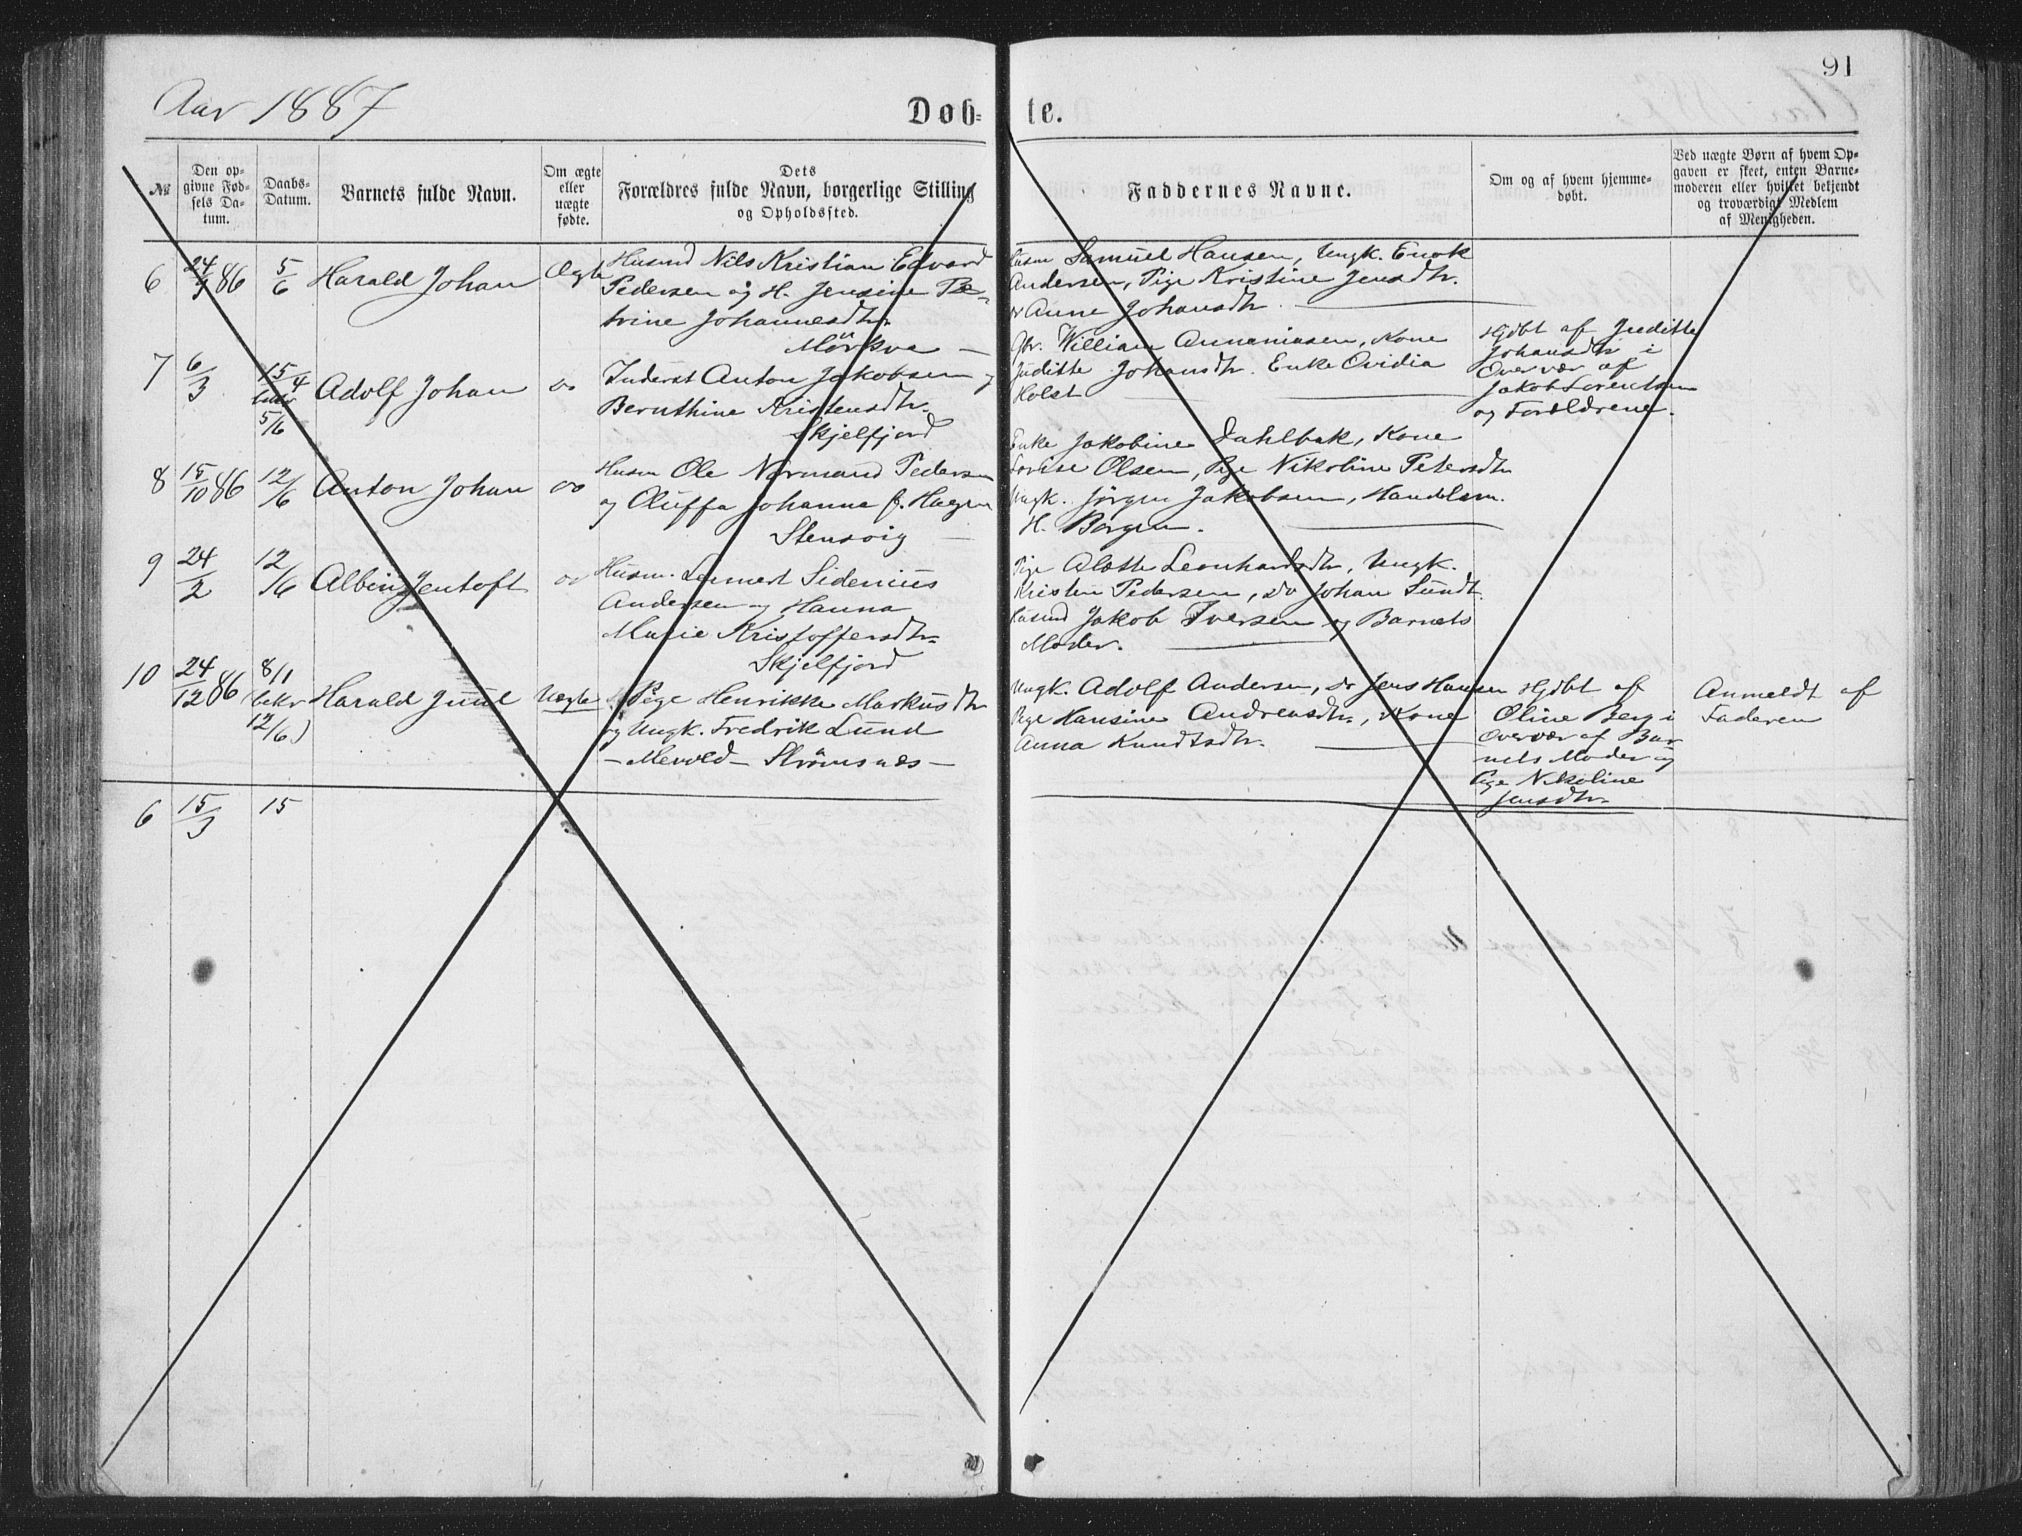 91
Aar 1887
Døb-
te.
№
Den op-
givne Fød-
sels Da-
tum.
Daabs-
Datum.
Barnets fulde Navn.
Om ægte
eller
uægte
fødte.
Dets
Forældres fulde Navn, borgerlige Stilling
og Opholdssted.
Faddernes Navne.
Om og af hvem hjemme-
døbt.
Ved uægte Børn af hvem Op-
gaven er skeet, enten Barne-
moderen eller hvilket bekjendt
og troværdigt Medlem
af Menigheden.
6 24/3 86 5/6 Harald Johan Ægte
Husmd Nils Kristian Edvard
Pedersen og H. Jensine Pe-
trine Johannesdtr.
Mörkve —
Husm Samuel Hansen, Ungk. Enok
Andersen, Pige Kristine Jensdtr.
Anne Johansdtr
7 6/3 15/4 bekr 5/6 Adolf Johan do
Inderst Anton Jakobsen og
Bernthine Kristensdtr.
Skjelfjord
Gbr. William Annaniasen, Kone
Juditte Johansdtr. Enke Ovidia
Holst
Hjdbt af Juditte
Johansdtr i
Overvær af
Jakob Lorentsen
og Forældrene.
8 15/10 86 12/6 Anton Johan do
Husm Ole Normand Pedersen
og Oluffa Johanna f. Hagen
Stensvig —
Enke Jakobine Dahlbak, Kone
Lovise Olsen, Pige Nikoline Petersdtr
Ungk. Jörgen Jakobsen, Handelsm.
H. Borgen.
9 24/2 12/6 Albin Jentoft do
Husm. Lennert Sidenius
Andersen og Hanna
Marie Kristoffersdtr.
Skjelfjord
Pige Alette Leonhardsdtr, Ungk.
Kristen Pedersen, do Johan Sundt.
Husmd Jakob Iversen og Barnets
Moder.
10 24/12 86 8/1 bekr 12/6) Harald Juul Uægte
Pige Henrikke Markusdtr
og Ungk. Fredrik Lund
— Mevold — Strömsnæs —
Ungk. Adolf Andersen, do Jens Hansen
Pige Hansine Andreasdtr, Kone
Anna Knudtsdtr.
Hjdbt af
Oline Berg i
Overvær af Bar-
nets Moder og
Pige Nikoline
Jensdtr.
Anmeldt af
Faderen
6 15/3 15